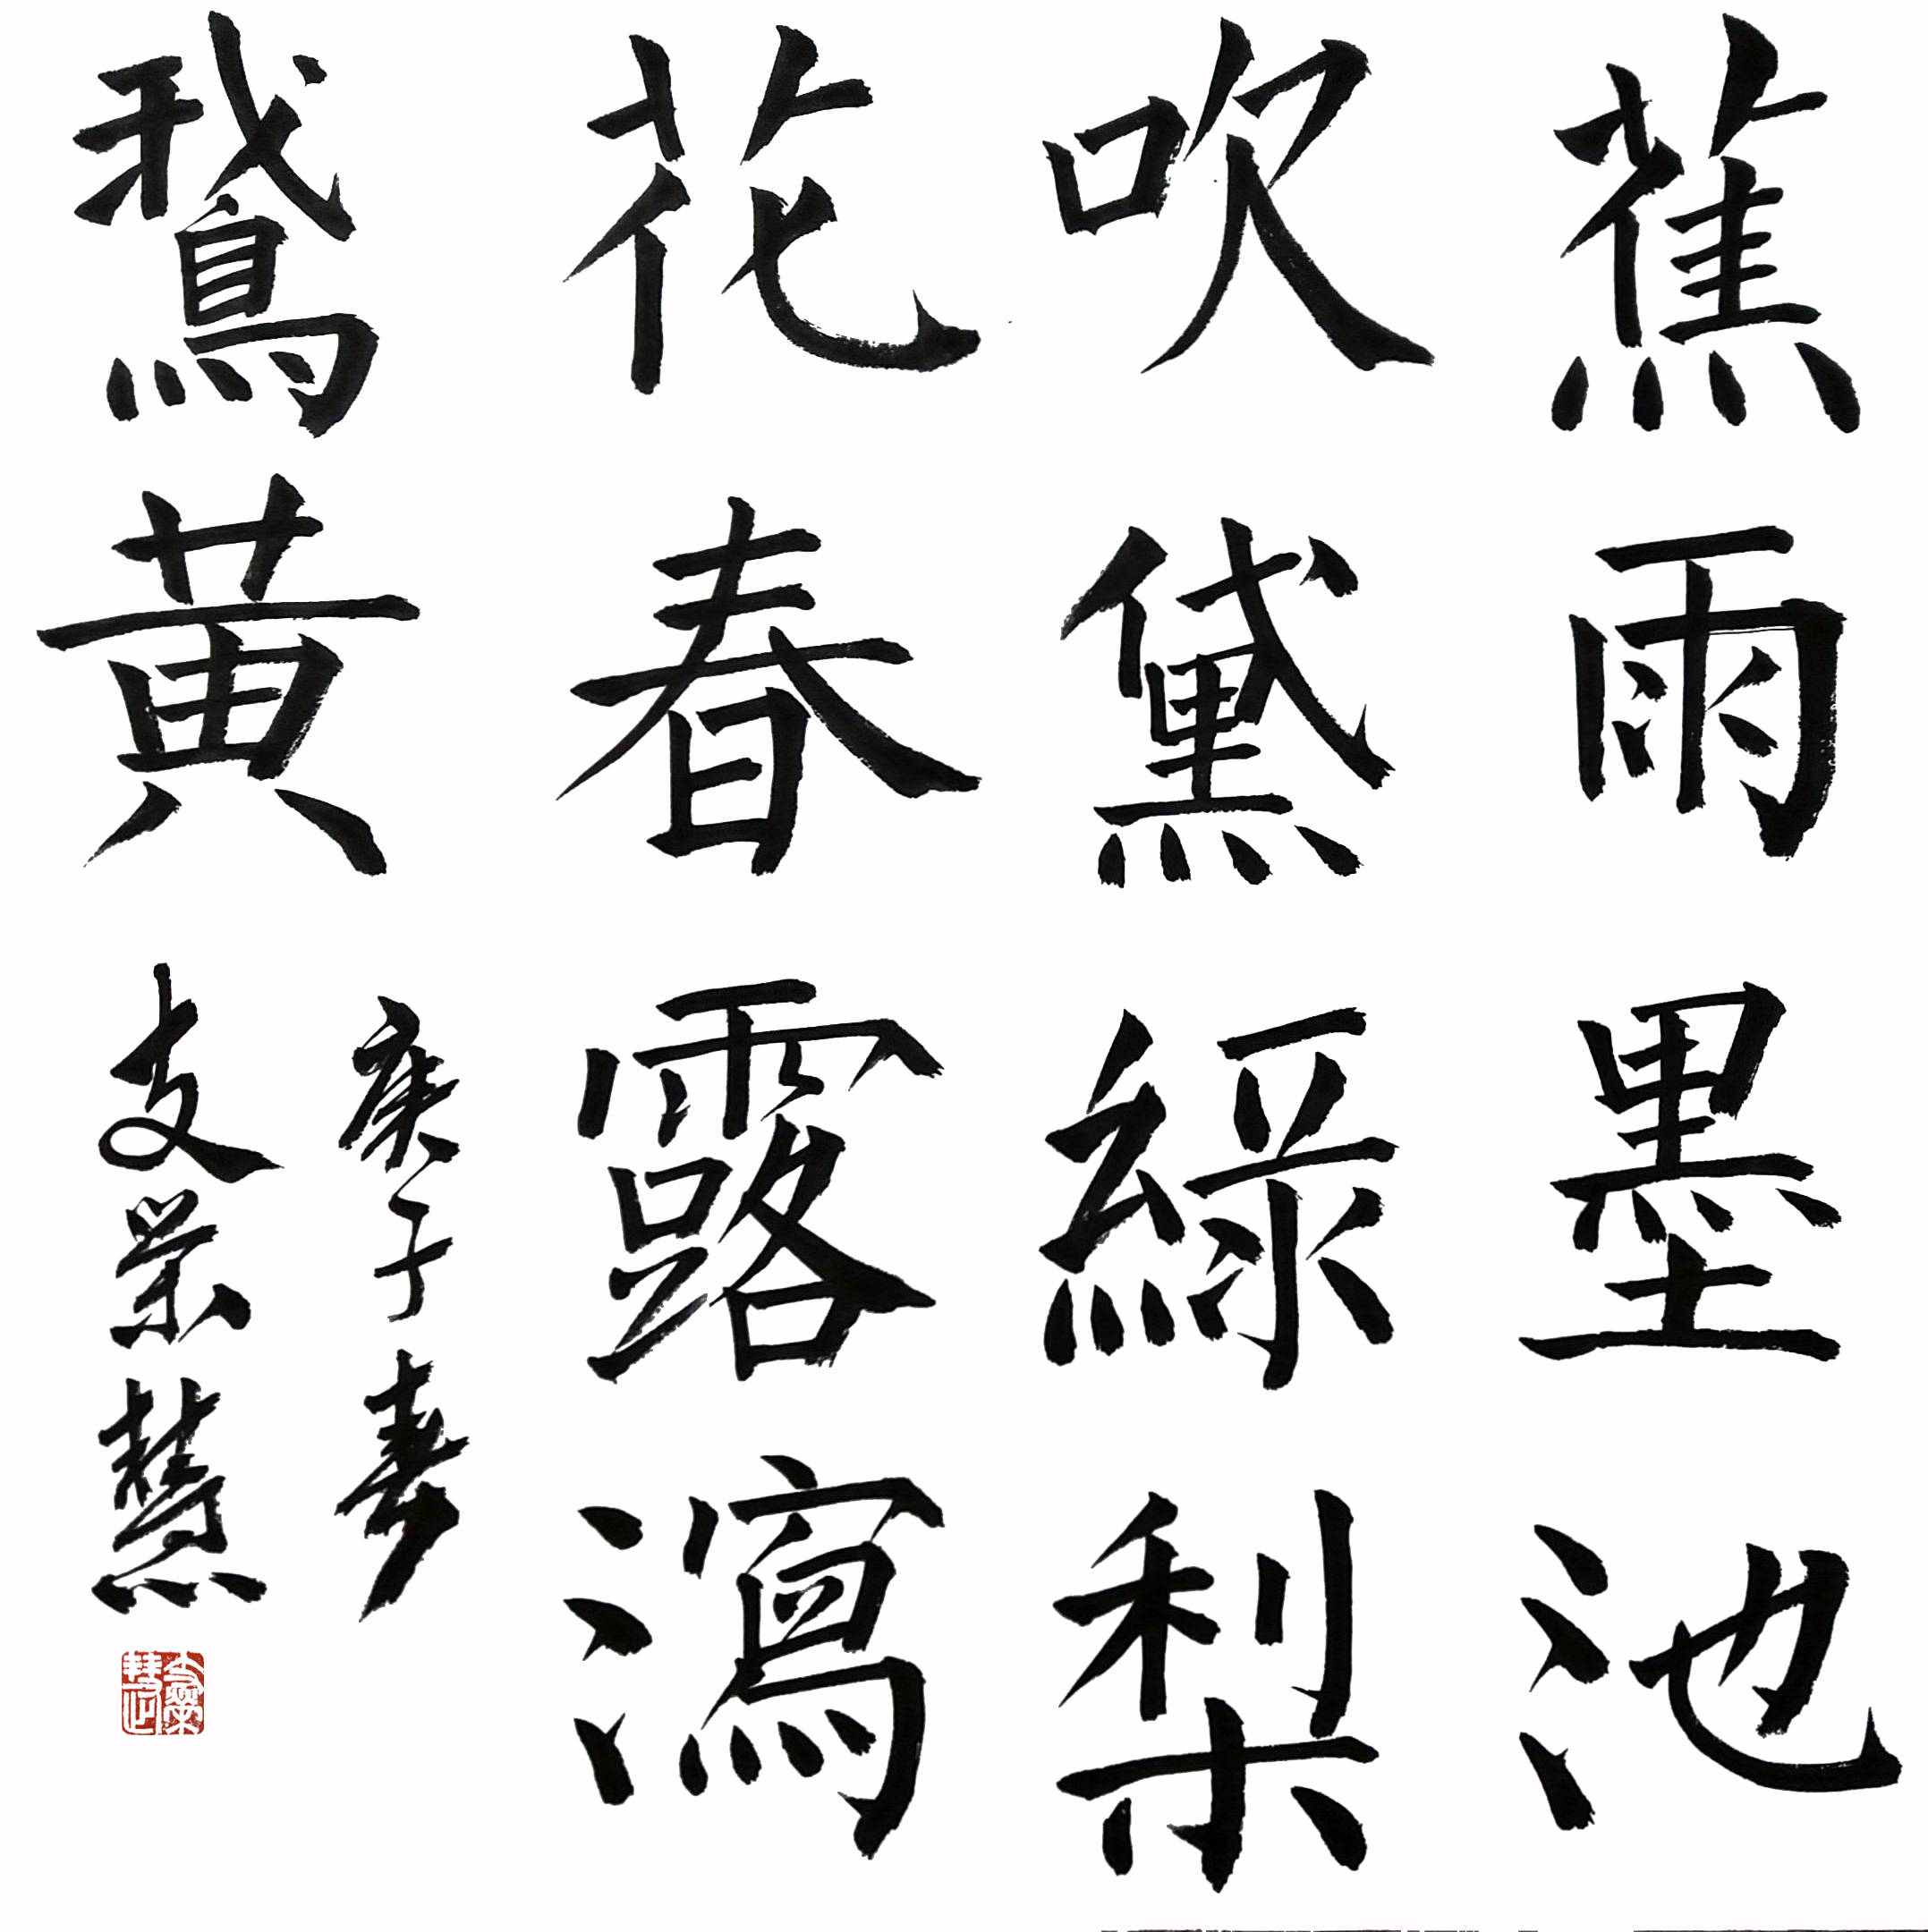 蕉雨墨池
吹黛綠梨
花春露瀉
鵝黃
庚子春
支榮慧
支榮慧